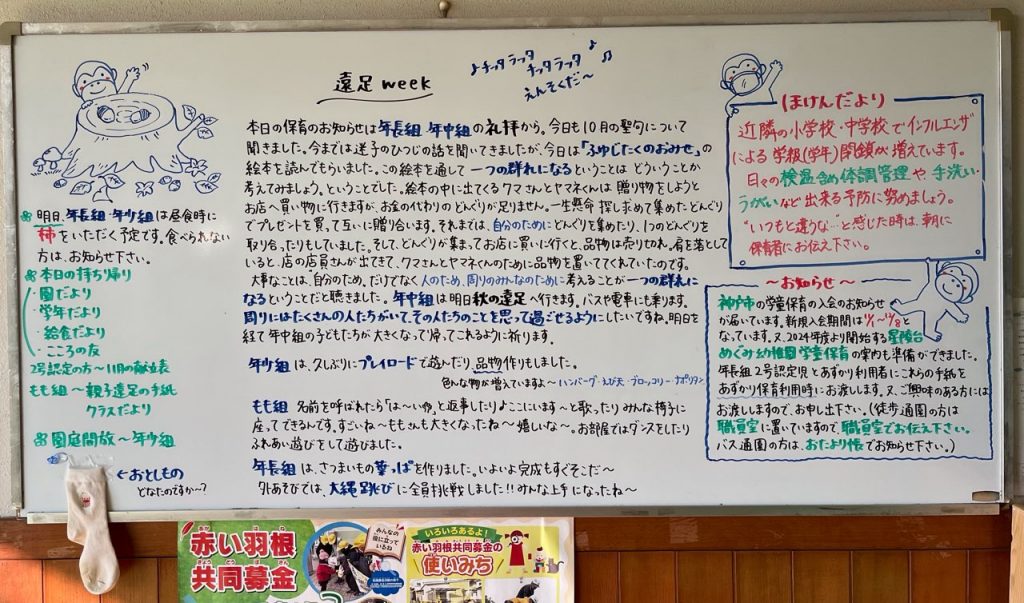 遠足week
♪チッタ ラッタ
チッタ ラッタ ♪♫
えんそくだ〜
本日の保育のお知らせは年長組 年中組の礼拝から。今日も10月の聖句について
聞きました。今までは迷子のひつじの話を聞いてきましたが、今日は「ふゆじたくのおみせ」の
絵本を読んでもらいました。この絵本を通して一つの群れになるということは どういうことか
考えてみましょう。ということでした。絵本の中に出てくるクマさんとヤマネくんは 贈り物をしようと
お店へ買い物に行きますが、お金の代わりの どんぐりが足りません。一生懸命 探し求めて集めたどんぐり
でプレゼントを買って互いに贈り合います。それまでは、自分のためにどんぐりを集めたり、1つのどんぐりを
取り合ったりもしていました。そして、どんぐりが集まってお店に買いに行くと、品物は売り切れ。肩を落として
いると、店の店員さんが出てきて、クマさんとヤマネくんのために品物を置いててくれていたのです。
大事なことは、自分のため、だけでなく人のため、周りのみんなのために考えることが一つの群れに
なるということだと聴きました。年中組は明日秋の遠足へ行きます。バスや電車にも乗ります。
周りにはたくさんの人たちがいて、その人たちのことを思って過ごせるようにしたいですね。明日を
経て年中組の子どもたちが大きくなって帰ってこれるように祈ります。
年少組は、久しぶりにプレイロードで遊んだり、品物作りもしました。
色んな物が増えていますよ〜ハンバーグ・えび天・ブロッコリー・ナポリタン
もも組 名前を呼ばれたら「は〜い」と返事したり♪ここにいます〜と歌ったり みんな椅子に
座ってできるんです。すごいね〜ももさんも大きくなったね〜嬉しいな〜。お部屋ではダンスをしたり
ふれあい遊びをして遊びました。
年長組は、さつまいもの葉っぱを作りました。いよいよ完成もすぐそこだ〜
外あそびでは、大縄跳びに全員挑戦しました!!みんな上手になったね〜
明日、年長組・年少組は昼食時に
柿をいただく予定です。食べられない
方は、お知らせ下さい。
本日の持ち帰り
・園だより
・学年だより
・給食だより
・こころの友
2号認定の方〜11月の献立表
もも組〜親子遠足の手紙
クラスだより
園庭開放〜年少組
←おとしもの
どなたのですか〜?
ほけんだより
近隣の小学校・中学校でインフルエンザ
による 学級(学年)閉鎖が増えています。
日々の検温含め体調管理や 手洗い・
うがいなど出来る予防に努めましょう。
"いつもと違うな…"と感じた時は、朝に
保育者にお伝え下さい。
〜お知らせ〜
神戸市の学童保育の入会のお知らせ
が届いています。新規入会期間は11/1〜12/8と
なっています。又、2024年度より開始する星陵台
めぐみ幼稚園学童保育の案内も準備ができました。
年長組2号認定児とあずかり利用者にこれらの手紙を
あずかり保育利用時にお渡しします。又、ご興味のある方には
お渡ししますので、お申し出下さい。(徒歩通園の方は
職員室に置いていますので、職員室でお伝え下さい。
バス通園の方は、おたより帳でお知らせ下さい。)
赤い羽根
共同募金
みんなの
役に立って
いるね
いろいろあるよ!
赤い羽根共同募金の
使いみち